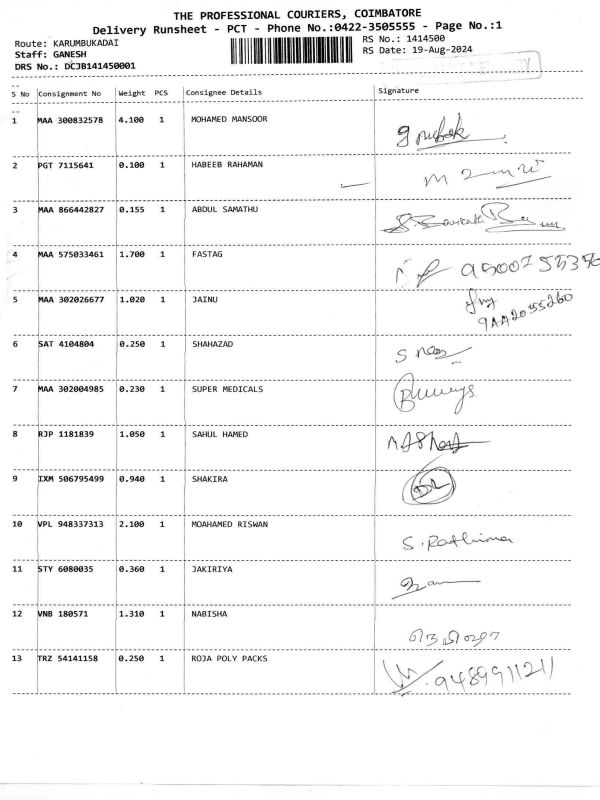 THE PROFESSIONAL COURIERS, COIMBATORE
Delivery Runsheet - PCT - Phone No.:0422-3505555 - Page No.:1
Route: KARUMBUKADAI RS No.: 1414500
Staff: GANESH RS Date: 19-Aug-2024
DRS No.: DCJB141450001
S No Consignment No Weight PCS Consignee Details Signature
1 MAA 300832578 4.100 1 MOHAMED MANSOOR
2 PGT 7115641 0.100 1 HABEEB RAHAMAN
3 MAA 866442827 0.155 1 ABDUL SAMATHU
4 MAA 575033461 1.700 1 FASTAG
5 MAA 302026677 1.020 1 JAINU
6 SAT 4104804 0.250 1 SHAHAZAD
7 MAA 302004985 0.230 1 SUPER MEDICALS
8 RJP 1181839 1.050 1 SAHUL HAMED
9 IXM 506795499 0.940 1 SHAKIRA
10 VPL 948337313 2.100 1 MOAHAMED RISWAN S. Rathima
11 STY 6080035 0.360 1 JAKIRIYA
12 VNB 180571 1.310 1 NABISHA
13 TRZ 54141158 0.250 1 ROJA POLY PACKS